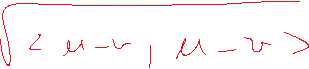 √<u-v, u-v>